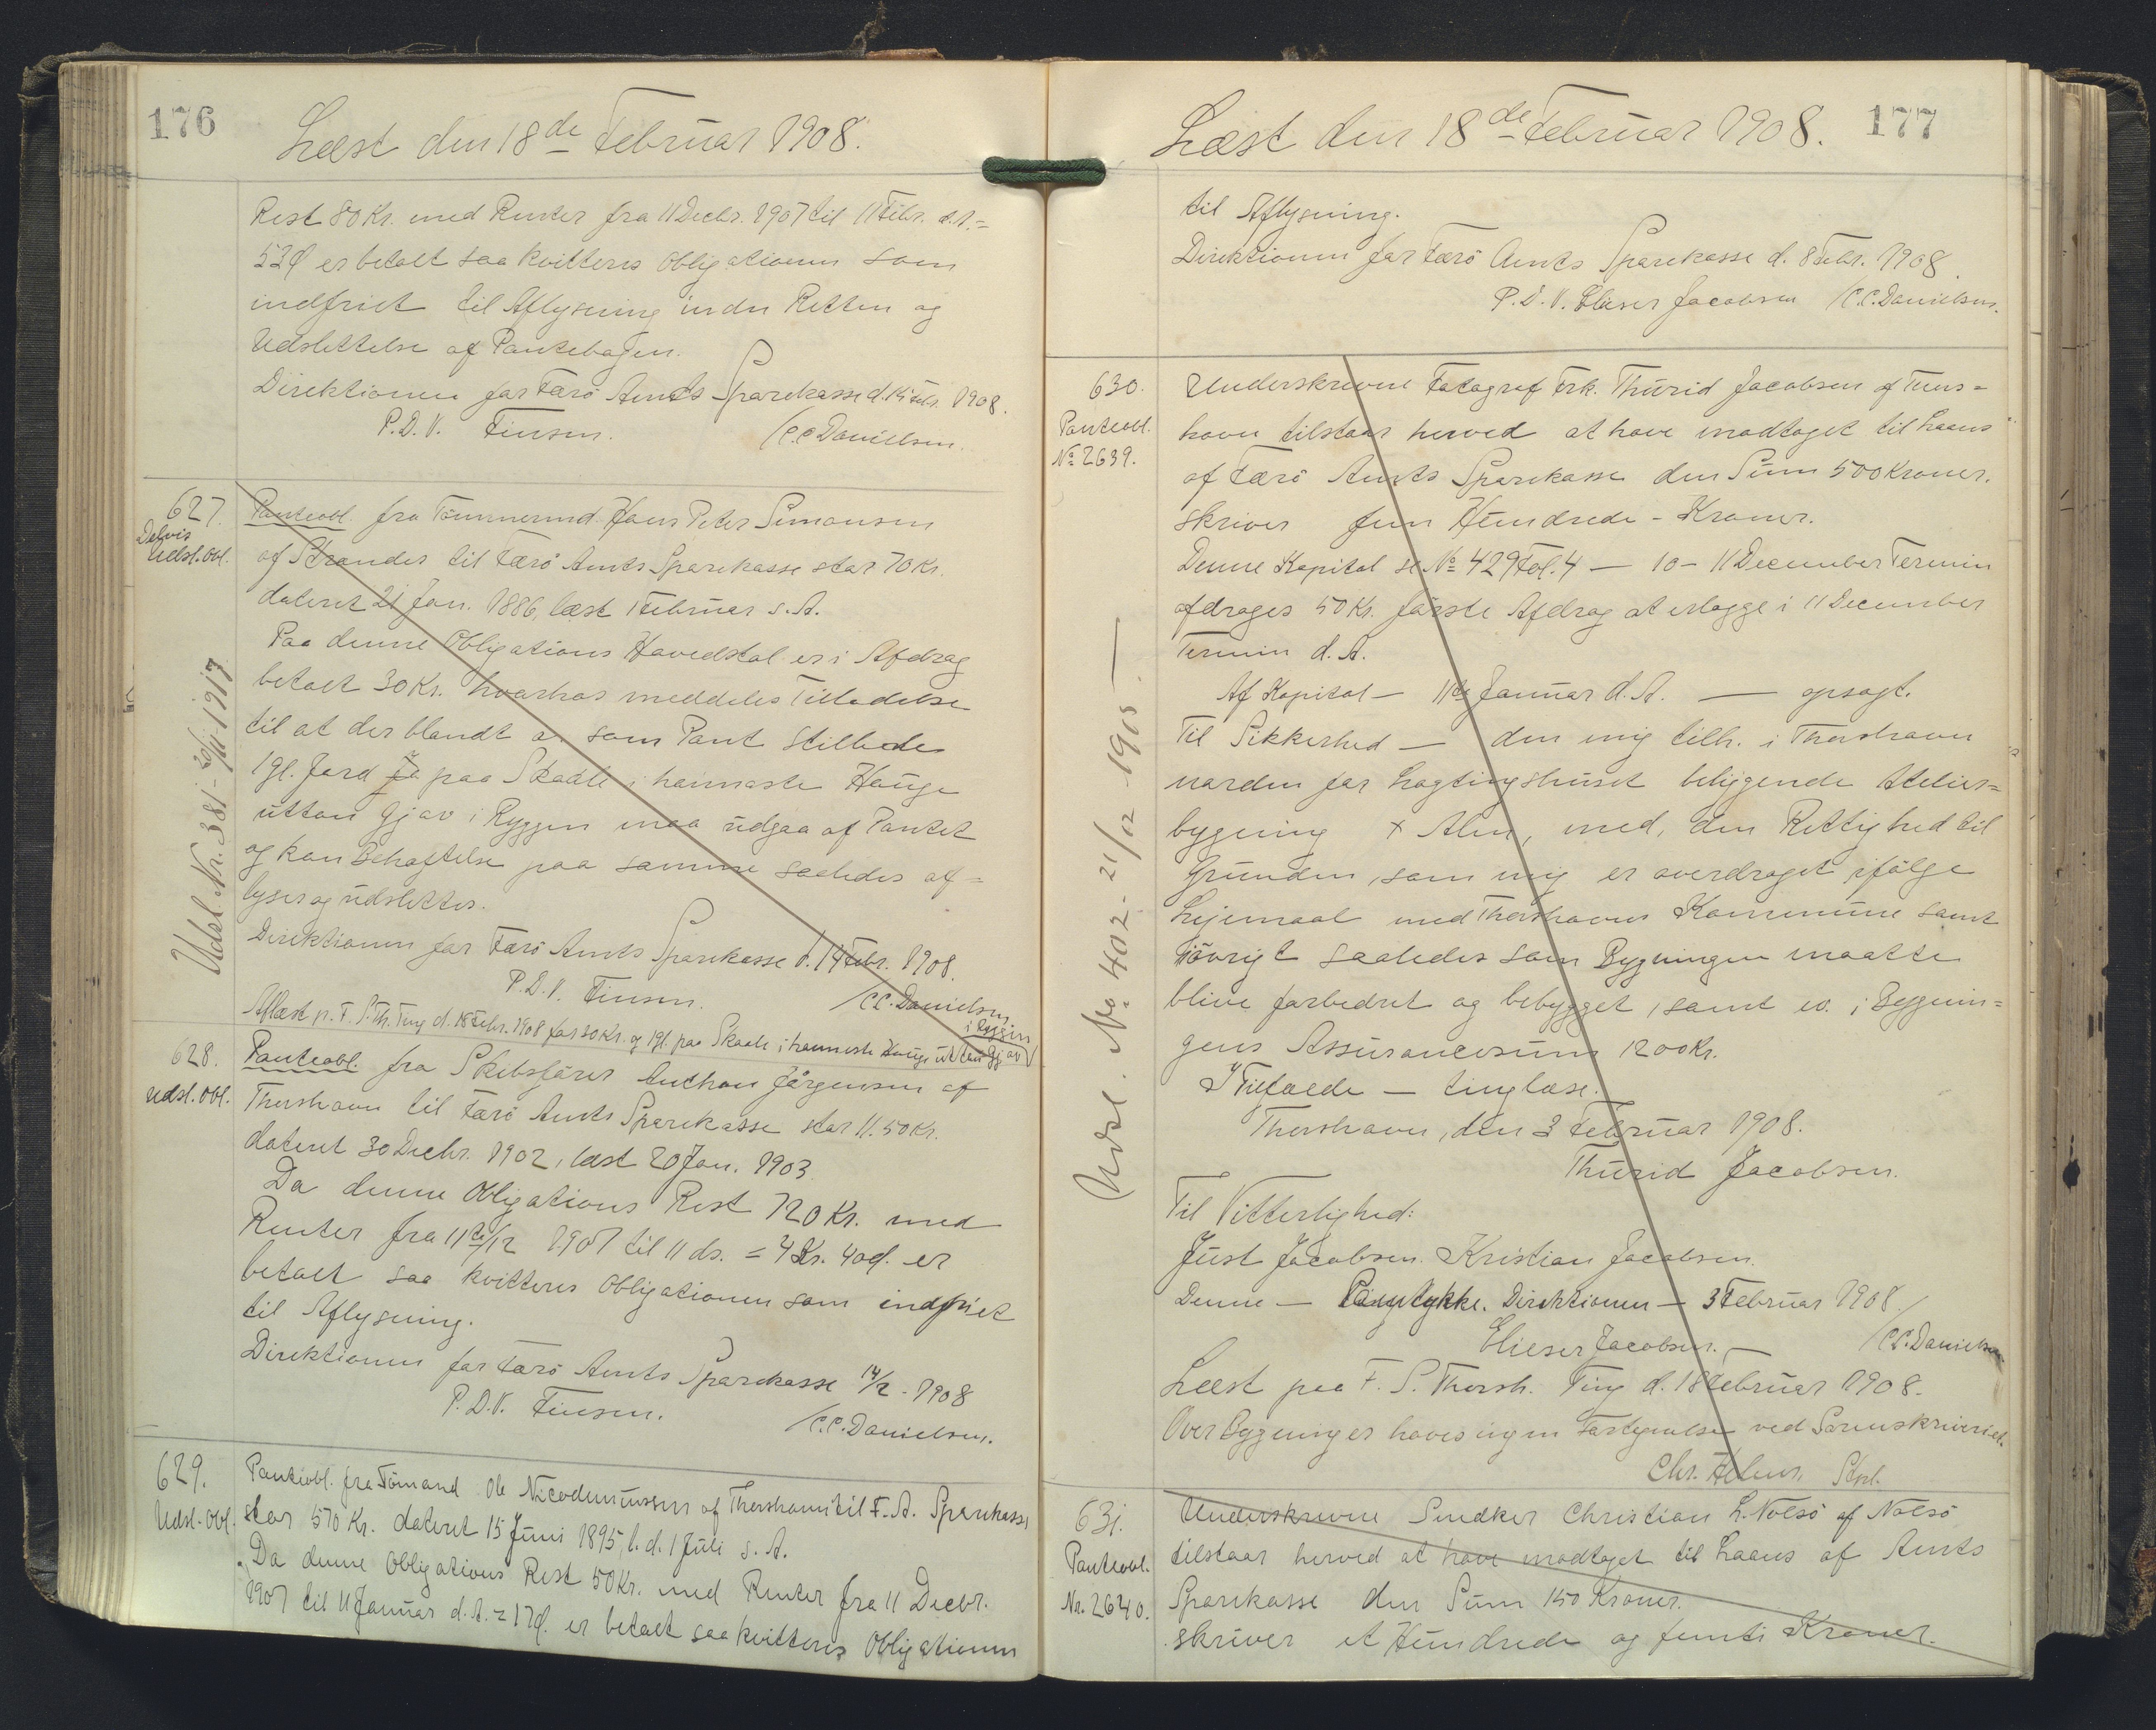 176
Læst den 18de Februar 1908.
Rest 80 Kr. med Renter fra 11 Decbr. 1907 til 11 Febr. d.A. =
53 Ø er betalt saa kvitteres Obligationen som
indfriet til Aflysning inden Retten og
Udslettelse af Pantebogen.
Direktionen for Færö Amts Sparekasse d. 14 Febr. 1908.
P.D.V. Finsen. /C.C. Danielsen.
627.
Delvis
Udsl. Obl.
Udsl. Nr. 381 - 1917
Panteobl. fra Tömmermd. Hans Peter Simonsen
af Strander til Færö Amts Sparekasse stor 70 Kr.
dateret 21 Jan. 1886, læst 1 Februar s. A.
Paa denne Obligations Hovedstol er i Afdrag
betalt 30 Kr. hvorhos meddeles Tilladelse
til at der blandt a. som Pant stillede
1 gl. Jord paa Skaale i heimaste Hauge
uttan Gjav i Ryggen maa udgaa af Pantet
og kan Behæftelse paa samme saaledes af=
lyses og udslettes.
Direktionen for Færö Amts Sparekasse d. 14 Febr. 1908.
P.D.V. Finsen. /C.C. Danielsen.
Aflæst p. F. S. Th. Ting d. 18 Febr. 1908 for 30 Kr. og 1 gl. paa Skaale i heimeste Hauge uttan Gjav
i Ryggin
628.
Udsl. Obl.
Panteobl. fra Skibsförer Anthon Jörgensen af
Thorshavn til Færö Amts Sparekasse stor 1150 Kr.
dateret 30 Decbr. 1902, læst 20 Jan. 1903
Da denne Obligations Rest 720 Kr. med
Renter fra 11 /12 1907 til 11 ds. = 4 Kr. 40 Ø. er
betalt saa kvitteres Obligationen som indfriet
til Aflysning.
Direktionen for Færö Amts Sparekasse 14/2 - 1908
P.D.V. Finsen. /C.C. Danielsen.
629.
Udsl. Obl.
Panteobl. fra Tömand Ole Nicodemussen af Thorshavn til F. A. Sparekasse
stor 570 Kr. dateret 15 Juni 1895, l. d. 1 Juli s. A.
Da denne Obligations Rest 50 Kr. med Renter fra 11 Decbr.
1907 til 11 Januar d. A. = 17 Ø. er betalt saa kvitteres Obligationen
177
Læst den 18de Februar 1908.
til Aflysning.
Direktionen for Færö Amts Sparekasse d. 8 Febr. 1908.
P.D.V. Elieser Jacobsen /C.C. Danielsen.
630.
Panteobl.
No 2639.
Udsl. No. 402 - 21/12 - 1915.
Underskrevne Fotograf Frk. Thurid Jacobsen af Tors=
havn tilstaar herved at have modtaget til Laans
af Færö Amts Sparekasse den Sum 500 Kroner.
skriver fem Hundrede - Kroner.
Denne Kapital se No 429 Fol. 4 — 10 - 11 December Termin
afdrages 50 Kr. förste Afdrag at erlægge i 11 December
Termin d. A.
Af Kapital — 11te Januar d. A. — opsagt.
Til Sikkerhed — den mig tilh. i Thorshavn
norden for Lagtingshuset beliggende Atelier=
bygning × Alen, med, den Rettighed til
Grunden, som mig er overdraget ifölge
Lejemaal med Thorshavns Kommune samt
iövrigt saaledes som Bygningen maatte
blive forbedret og bebygget, samt ev. i Bygnin=
gens Assurancesum 1200 Kr.
I Tilfælde — tinglæse.
Thorshavn, den 3 Februar 1908.
Thurid Jacobsen.
Til Vitterlighed:
Just Jacobsen. Kristian Jacobsen.
Denne — Samtykke. Direktionen — 3 Februar 1908.
Elieser Jacobsen. /C.C. Danielsen
Læst paa F. S. Thorsh. Ting d. 18 Februar 1908.
Over Bygninger haves ingen Fortegnelse ved Sorenskriveriet.
Chr. Holm. Sksl.
631.
Panteobl.
Nr. 2640.
Underskrevne Snedker Christian L. Nolsö af Nolsö
tilstaar herved at have modtaget til Laans af Amts
Sparekasse den Sum 150 Kroner.
skriver et Hundrede og femti Kroner.